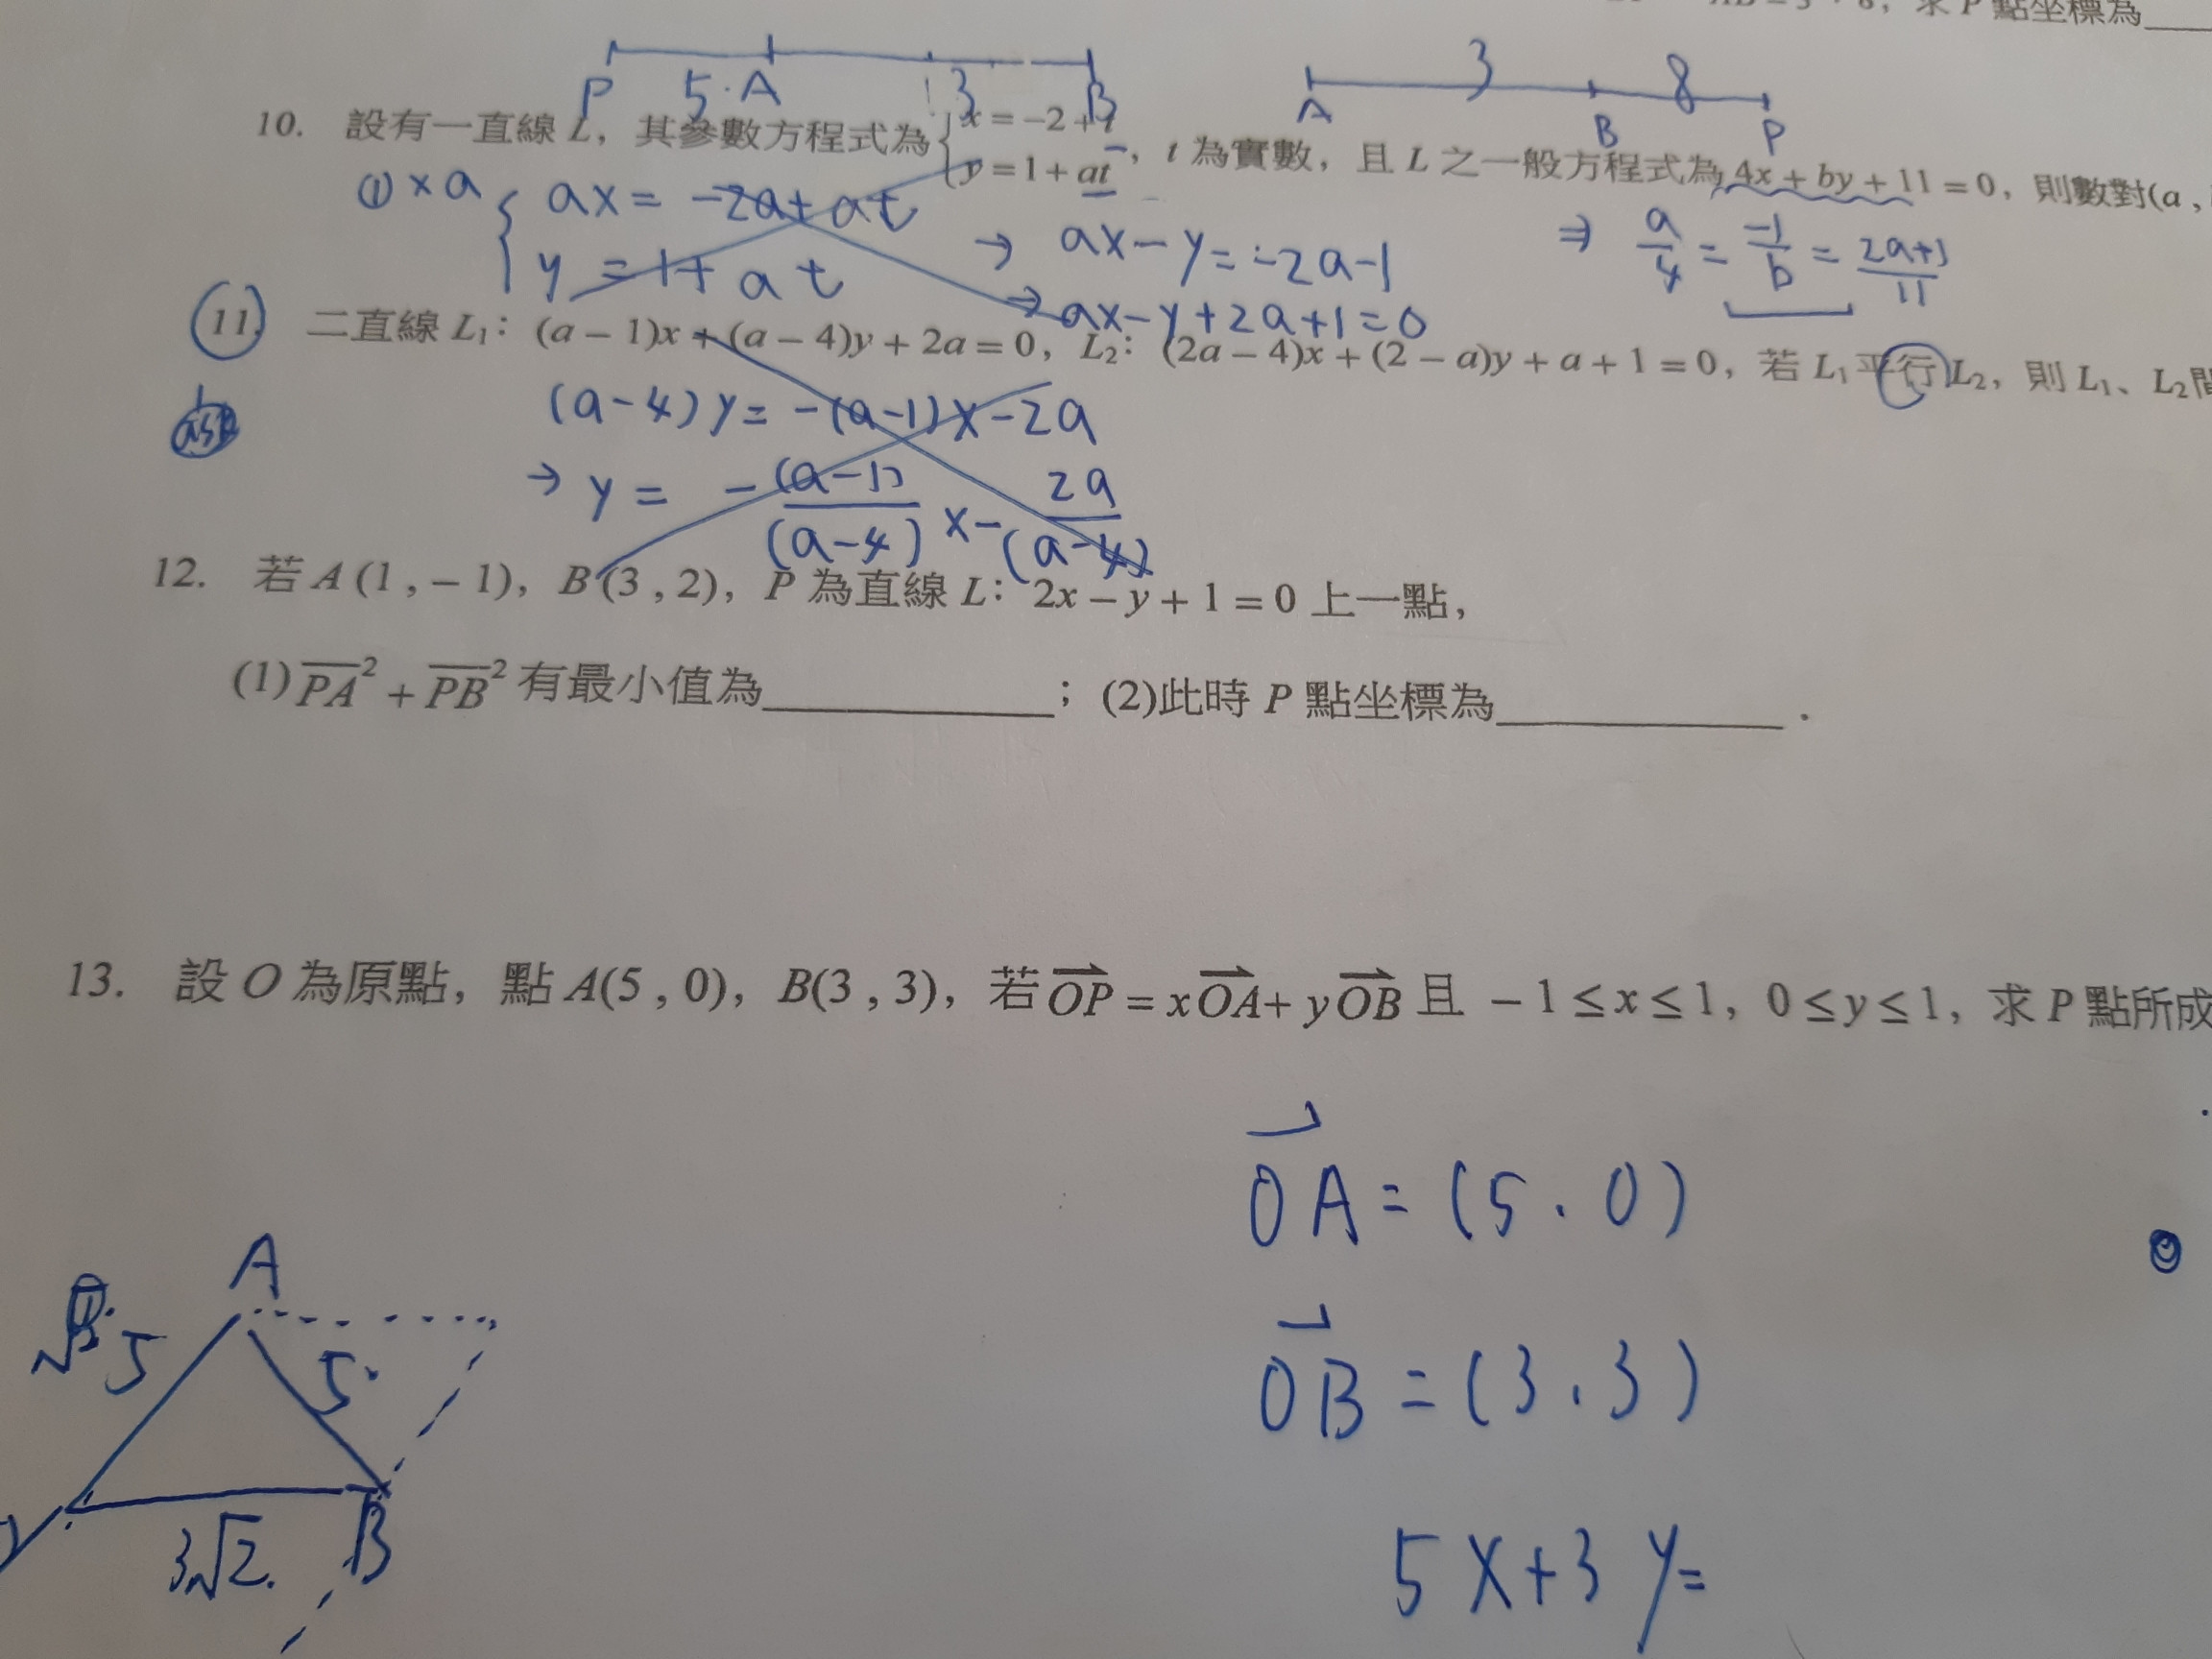 求 P 點坐標為
P 5 A 3 B
A 3 B 8 P
10. 設有一直線 L，其參數方程式為 { x = −2 + t
y = 1 + at ，t 為實數，且 L 之一般方程式為 4x + by + 11 = 0，則數對(a ,
① × a { ax = −2a + at
y = 1 + at
→ ax − y = −2a − 1
⇒ ax − y + 2a + 1 = 0
⇒ a/4 = −1/b = 2a+1/11
11. 二直線 L₁：(a − 1)x + (a − 4)y + 2a = 0，L₂：(2a − 4)x + (2 − a)y + a + 1 = 0，若 L₁平行 L₂，則 L₁、L₂間
(a−4) y = −(a−1) x − 2a
→ y = − (a−1)/(a−4) x − 2a/(a−4)
12. 若 A (1 , − 1)，B (3 , 2)，P 為直線 L：2x − y + 1 = 0 上一點，
(1) PA² + PB² 有最小值為____________；(2)此時 P 點坐標為____________．
13. 設 O 為原點，點 A(5 , 0)，B(3 , 3)，若 OP = xOA + yOB 且 − 1 ≤ x ≤ 1，0 ≤ y ≤ 1，求 P 點所成
OA = (5 . 0)
OB = (3 . 3)
5x + 3y =
A
5
5
3√2
B